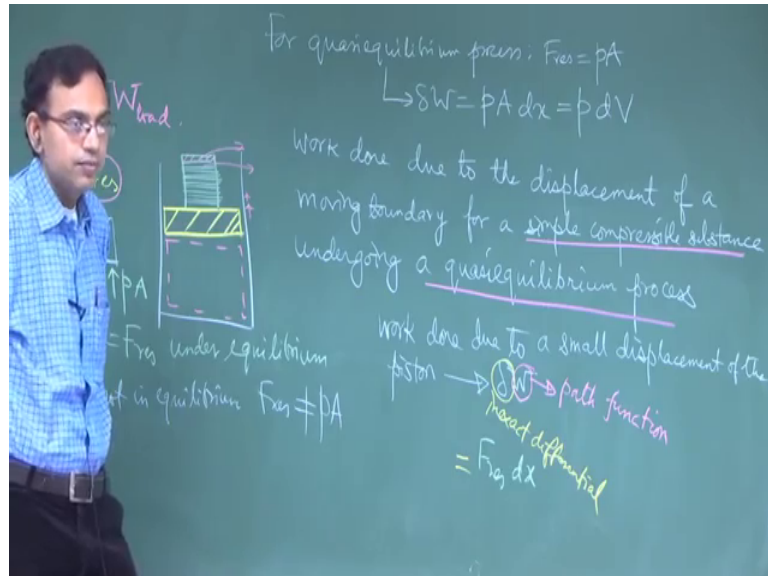 For quasiequilibrium process: Fres = pA
↳ δW = pA dx = p dV
Wload.
work done due to the displacement of a
moving boundary for a simple compressible substance
undergoing a quasiequilibrium process
↑ pA
= Fres under equilibrium
not in equilibrium Fres ≠ pA
work done due to a small displacement of the
piston → δW → path function
inexact differential
= Fres dx